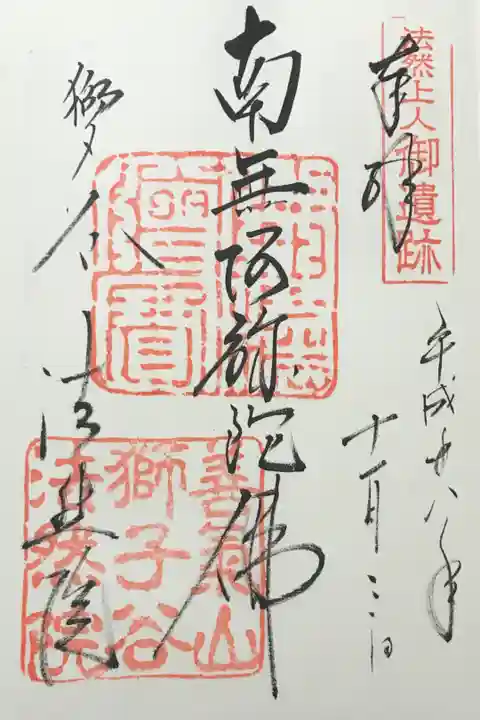 法然上人御遺跡
奉拝
平成廿八年
十一月三日
南無阿弥陀佛
獅々谷
法然院
善氣山
獅子谷
法然院